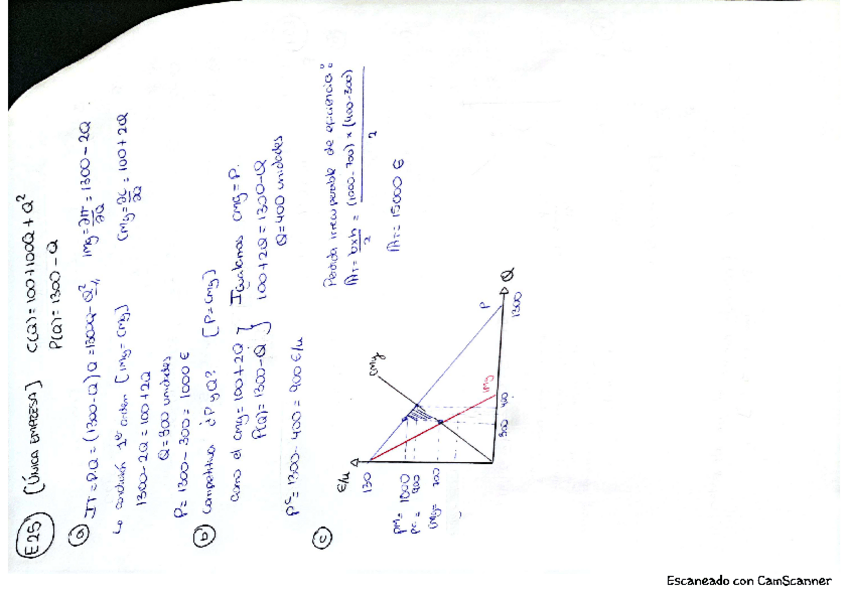 E25 [ÚNICA EMPRESA] C(Q) = 100+100Q + Q²
P(Q) = 1300 - Q
a) IT = P.Q = (1300-Q) Q = 1300Q - Q² Img = ∂IT/∂Q = 1300 - 2Q
↳ condición 1er orden [Img = Cmg] Cmg = ∂C/∂Q = 100+2Q
1300 - 2Q = 100 + 2Q
Q = 300 unidades
P = 1300 - 300 = 1000 €
b) Competitiva ¿P y Q? [P = Cmg]
como el Cmg = 100 + 2Q } Igualamos Cmg = P.
P(Q) = 1300 - Q } 100 + 2Q = 1300 - Q
Q = 400 unidades
Pc = 1300 - 400 = 900 €/u
c)
Pérdida irrecuperable de eficiencia:
AT = bxh/2 = (1000 - 700) x (400 - 300) / 2
AT = 15000 €
€/u
130
PM = 1000
Pc = 900
Cmg = 700
Cmg
Img
P
300 400 1300
Q
Escaneado con CamScanner